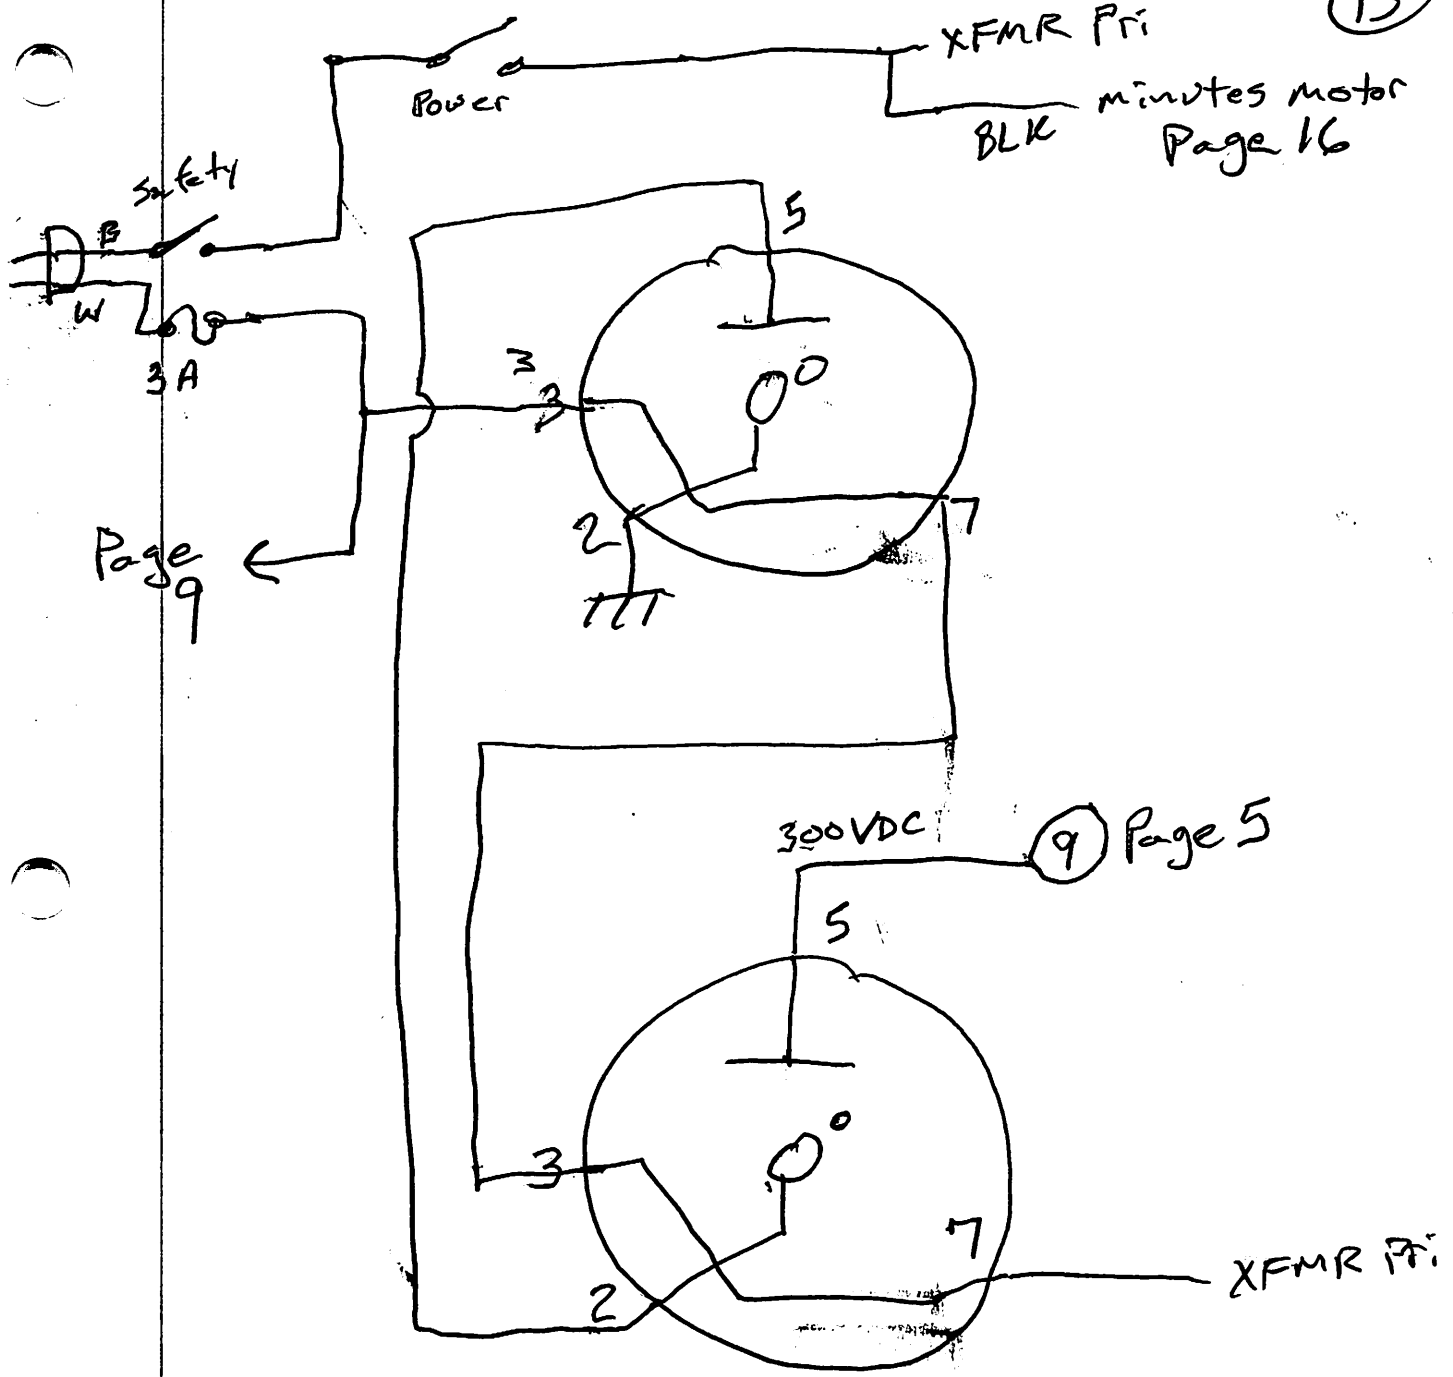 XFMR Pri
Power
minutes motor
BLK
Page 16
Safety
B
W
3A
5
3
3
2
7
Page
9
300VDC
9
Page 5
5
3
7
2
XFMR Pri